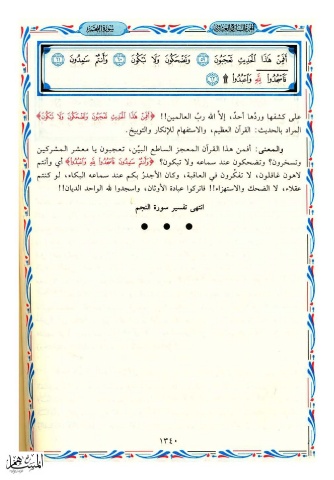 سورة النجم
أَفَمِنْ هَذَا الْحَدِيثِ تَعْجَبُونَ ٥٩ وَتَضْحَكُونَ وَلَا تَبْكُونَ ٦٠ وَأَنتُمْ سَامِدُونَ ٦١
فَاسْجُدُوا لِلَّهِ وَاعْبُدُوا ۩ ٦٢
على كشفها وردّها أحد، إلّا الله ربّ العالمين!! ﴿أَفَمِنْ هَذَا الْحَدِيثِ تَعْجَبُونَ وَتَضْحَكُونَ وَلَا تَبْكُونَ﴾
المراد بالحديث: القرآن العظيم، والاستفهام للإنكار والتوبيخ.
والمعنى: أفمن هذا القرآن المعجز الساطع البيّن، تعجبون يا معشر المشركين
وتسخرون؟ وتضحكون عند سماعه ولا تبكون؟ ﴿وَأَنتُمْ سَامِدُونَ فَاسْجُدُوا لِلَّهِ وَاعْبُدُوا﴾ أي وأنتم
لاهون غافلون، لا تفكّرون في العاقبة، وكان الأجدرُ بكم عند سماعه البكاء، لو كنتم
عقلاء، لا الضحك والاستهزاء!! فاتركوا عبادة الأوثان، واسجدوا لله الواحد الديان!!
انتهى تفسير سورة النجم
١٣٤٠